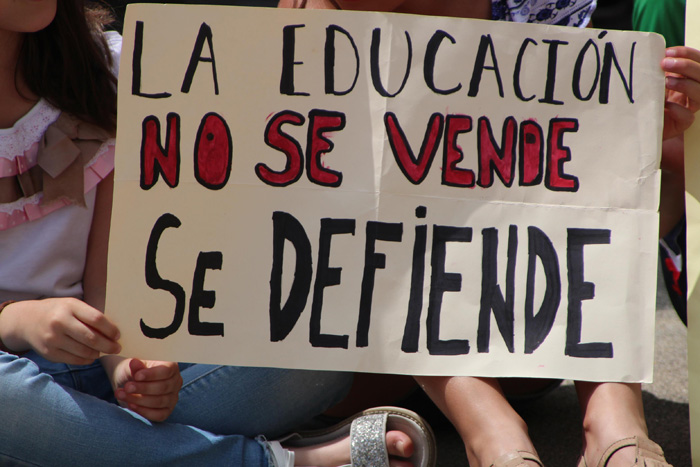 LA EDUCACIÓN
NO SE VENDE
SE DEFIENDE